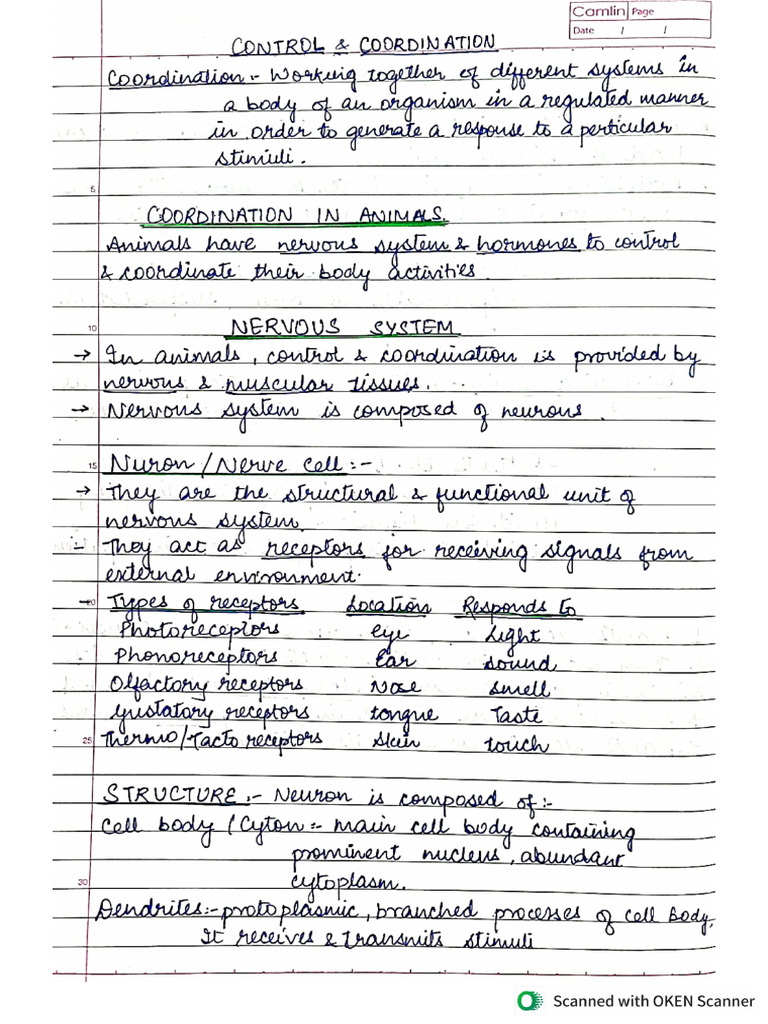 Camlin Page
Date / /
CONTROL & COORDINATION
Coordination:- Working together of different systems in
a body of an organism in a regulated manner
in order to generate a response to a perticular
stimuli.
5
COORDINATION IN ANIMALS.
Animals have nervous system & hormones to control
& coordinate their body activities.
10
NERVOUS SYSTEM
→ In animals, control & coordination is provided by
nervous & muscular tissues.
→ Nervous system is composed of neurons.
15 Nuron/Nerve cell:-
→ They are the structural & functional unit of
nervous system.
- They act as receptors for receiving signals from
external environment.
20 Types of receptors Location Responds to
Photoreceptors eye Light
Phonoreceptors Ear sound
Olfactory receptors Nose smell
Gustatory receptors tongue Taste
25 Thermo/Tacto receptors skin touch
STRUCTURE:- Neuron is composed of:-
Cell body / Cyton:- main cell body containing
prominent nucleus, abundant
30 cytoplasm.
Dendrites:- protoplasmic, branched processes of cell Body,
It receives & transmits stimuli
Scanned with OKEN Scanner